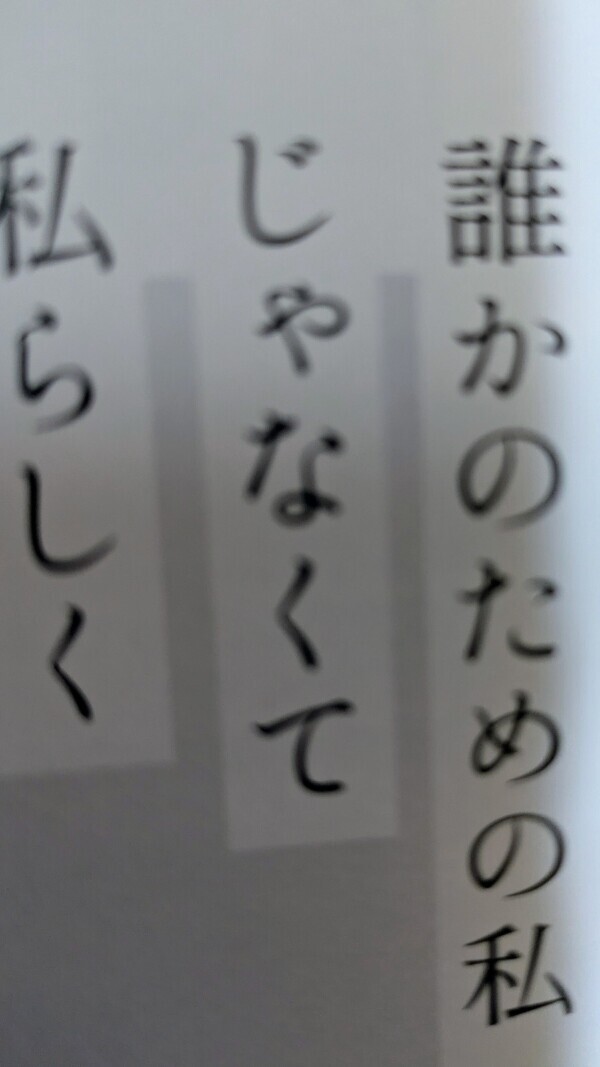 誰かのための私
じゃなくて
私らしく